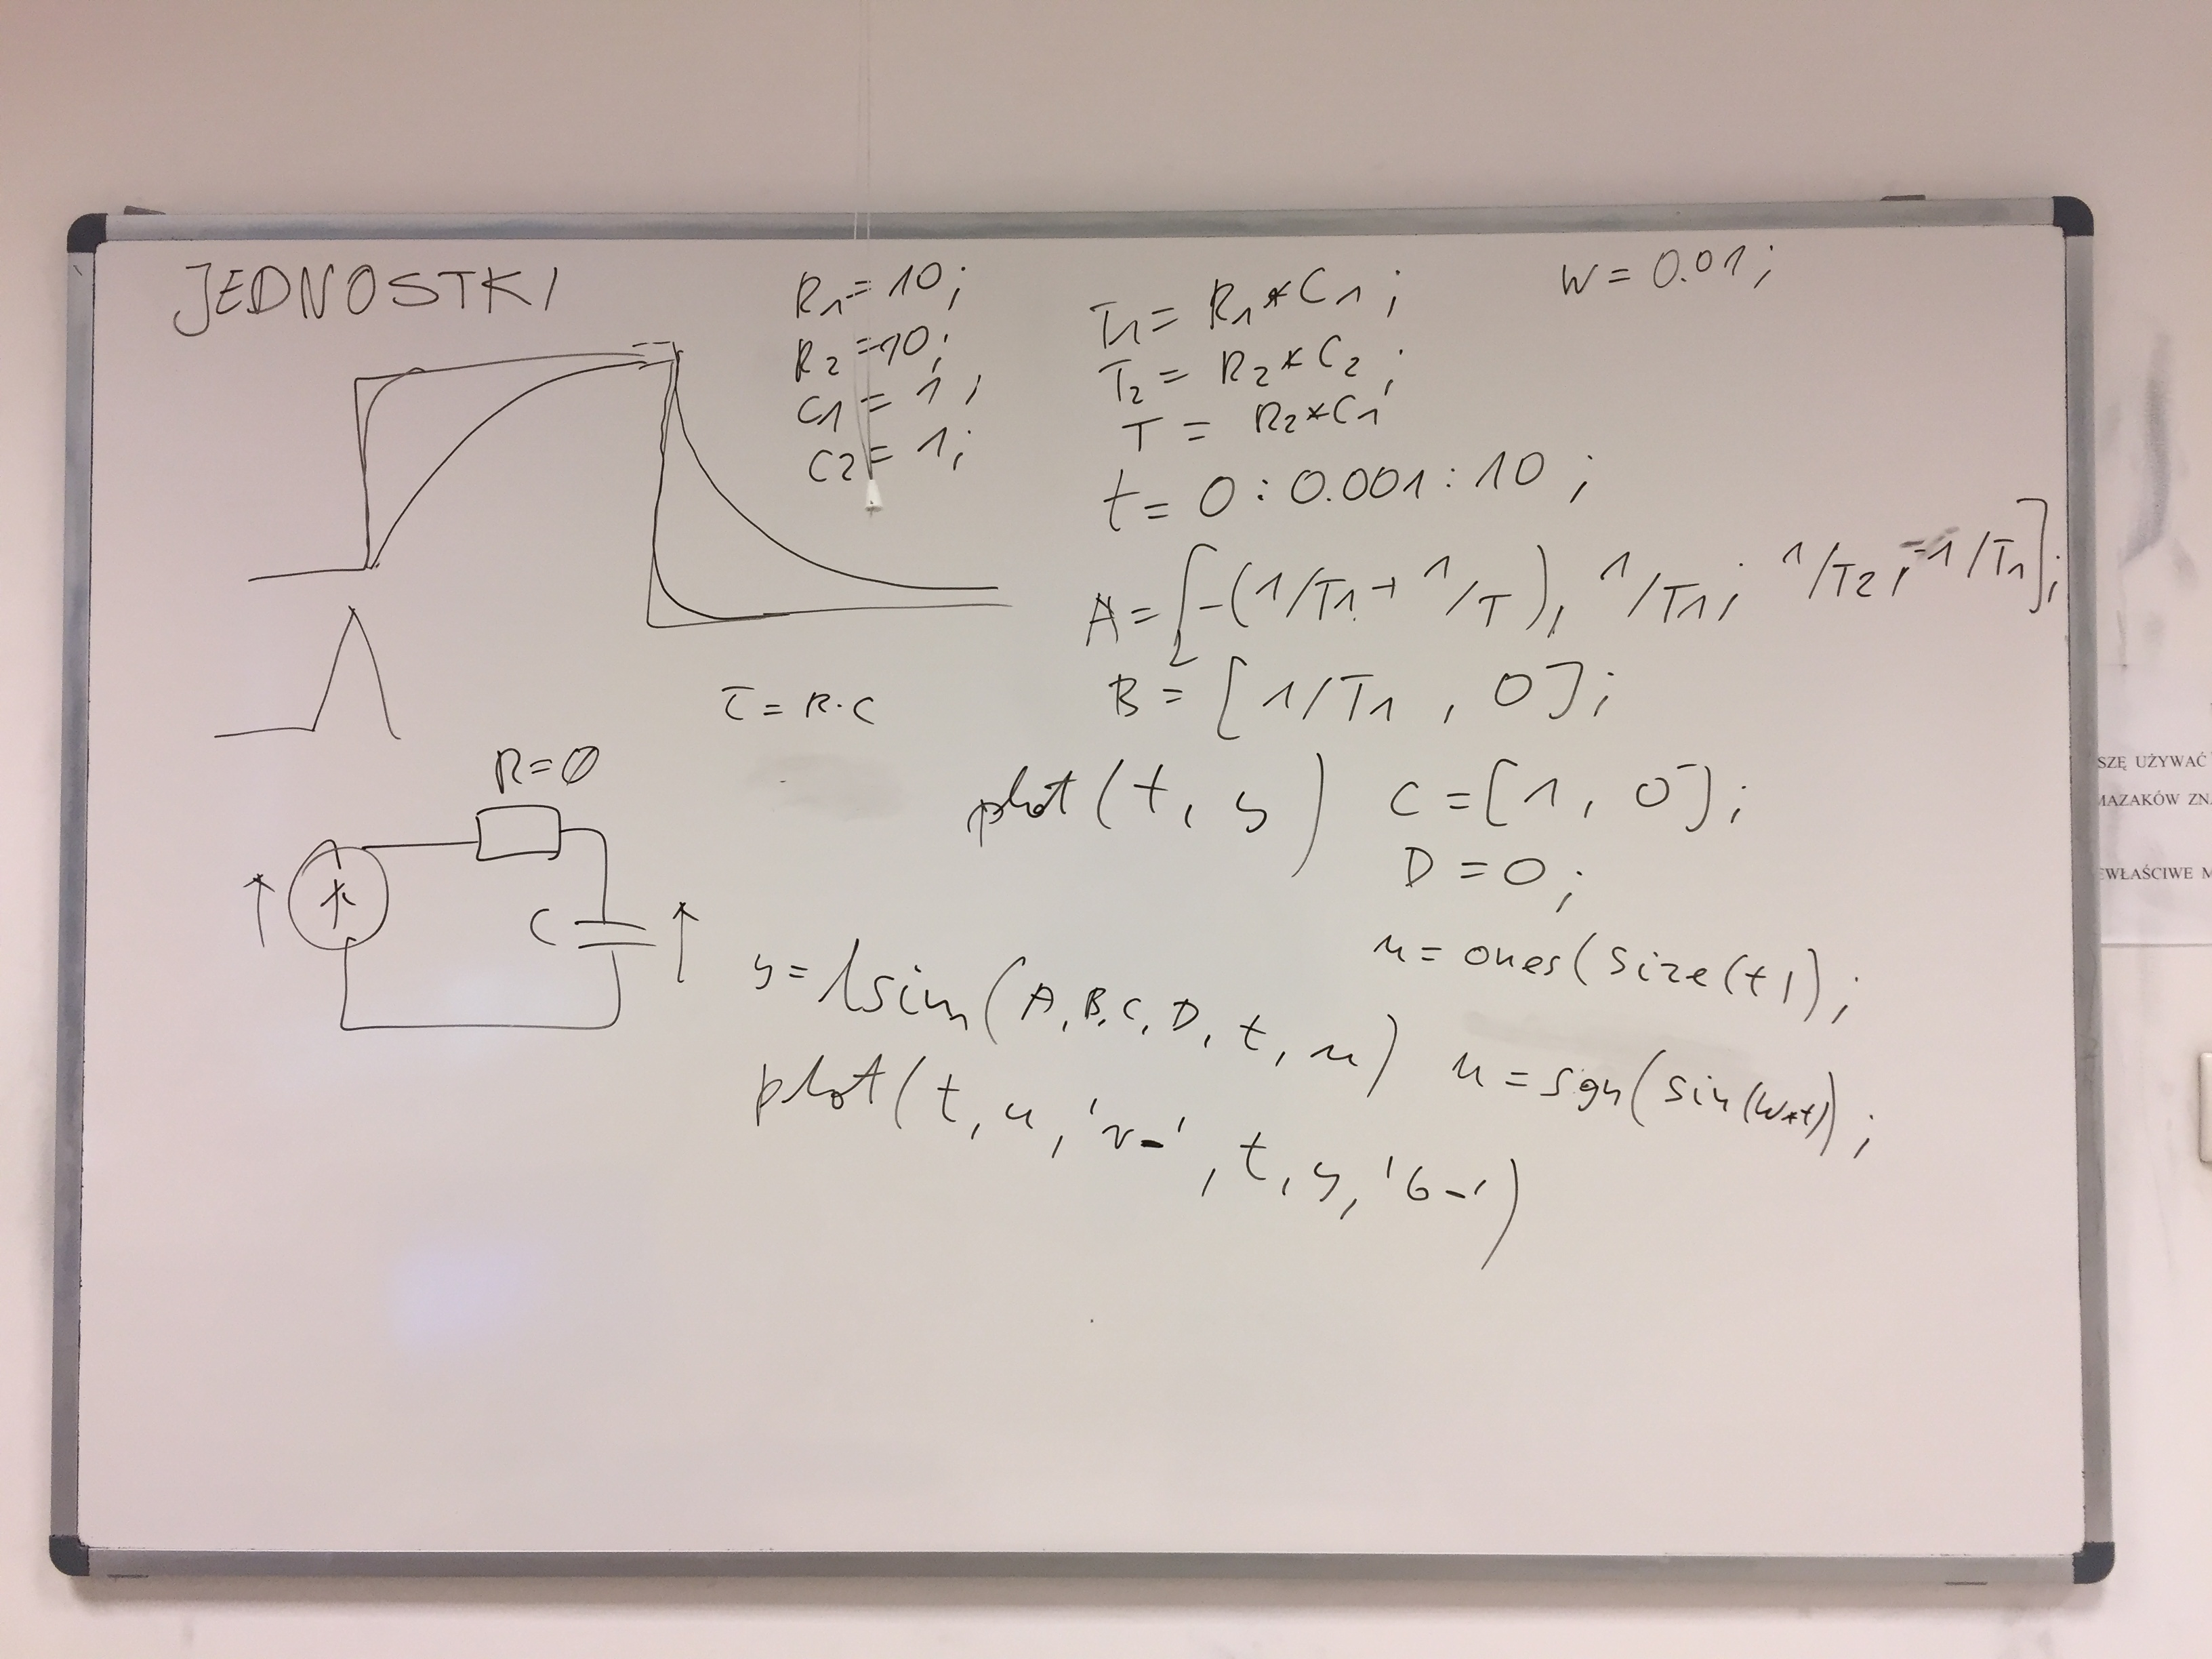 JEDNOSTKI
R1 = 10;
R2 = 10;
C1 = 1;
C2 = 1;
T1 = R1 * C1;
T2 = R2 * C2;
T = R2 * C1
W = 0.01;
t = 0 : 0.001 : 10;
A = [-(1/T1 + 1/T), 1/T1; 1/T2, -1/T1];
B = [1/T1, 0];
τ = R·C
plot(t, y)
C = [1, 0];
D = 0;
R=0
C
u = ones(size(t));
y = lsim(A, B, C, D, t, u)
u = sgn(sin(W*t));
plot(t, u, 'r-', t, y, 'b-')
SZĘ UŻYWAĆ
MAZAKÓW ZN
EWŁAŚCIWE M